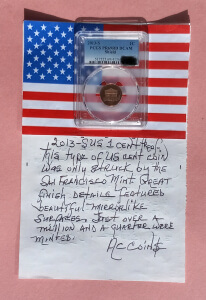 2013-S 1C
PCGS PR69RD DCAM
Shield
2013-S US 1 CENT
THIS TYPE OF US CENT COIN
WAS ONLY STRUCK BY THE
SAN FRANCISCO MINT. GREAT
DETAILS FEATURED
BEAUTIFUL MIRROR LIKE
SURFACES. JUST OVER A
MILLION AND A QUARTER WERE
MINTED.
AC COINS